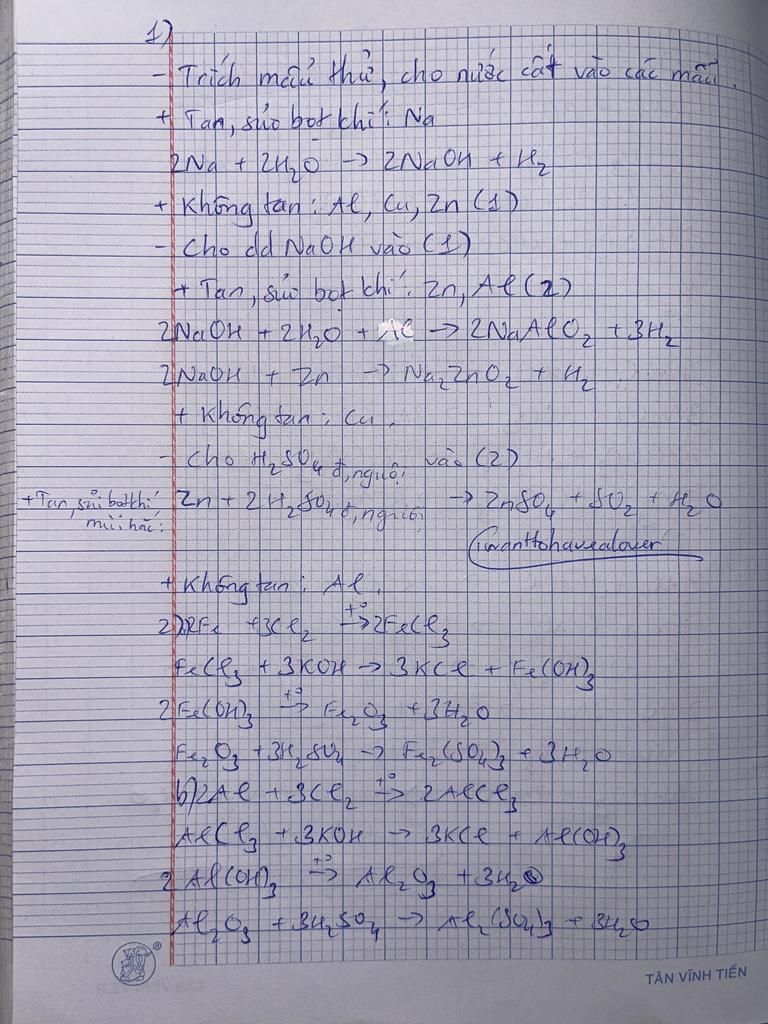 1)
- Trích mẫu thử, cho nước cất vào các mẫu.
+ Tan, sủi bọt khí: Na
2Na + 2H₂O → 2NaOH + H₂
+ Không tan: Al, Cu, Zn (1)
- Cho dd NaOH vào (1)
+ Tan, sủi bọt khí: Zn, Al (2)
2NaOH + 2H₂O + Al → 2NaAlO₂ + 3H₂
2NaOH + Zn → Na₂ZnO₂ + H₂
+ Không tan: Cu.
- Cho H₂SO₄ đ, nguội vào (2)
+ Tan, sủi bọt khí mùi hắc: Zn + 2H₂SO₄ đ, nguội → ZnSO₄ + SO₂ + H₂O
iwanttohavealover
+ Không tan: Al.
2) 2Fe + 3Cl₂ →(t°) 2FeCl₃
FeCl₃ + 3KOH → 3KCl + Fe(OH)₃
2Fe(OH)₃ →(t°) Fe₂O₃ + 3H₂O
Fe₂O₃ + 3H₂SO₄ → Fe₂(SO₄)₃ + 3H₂O
b) 2Al + 3Cl₂ →(t°) 2AlCl₃
AlCl₃ + 3KOH → 3KCl + Al(OH)₃
2Al(OH)₃ →(t°) Al₂O₃ + 3H₂O
Al₂O₃ + 3H₂SO₄ → Al₂(SO₄)₃ + 3H₂O
TÂN VĨNH TIẾN